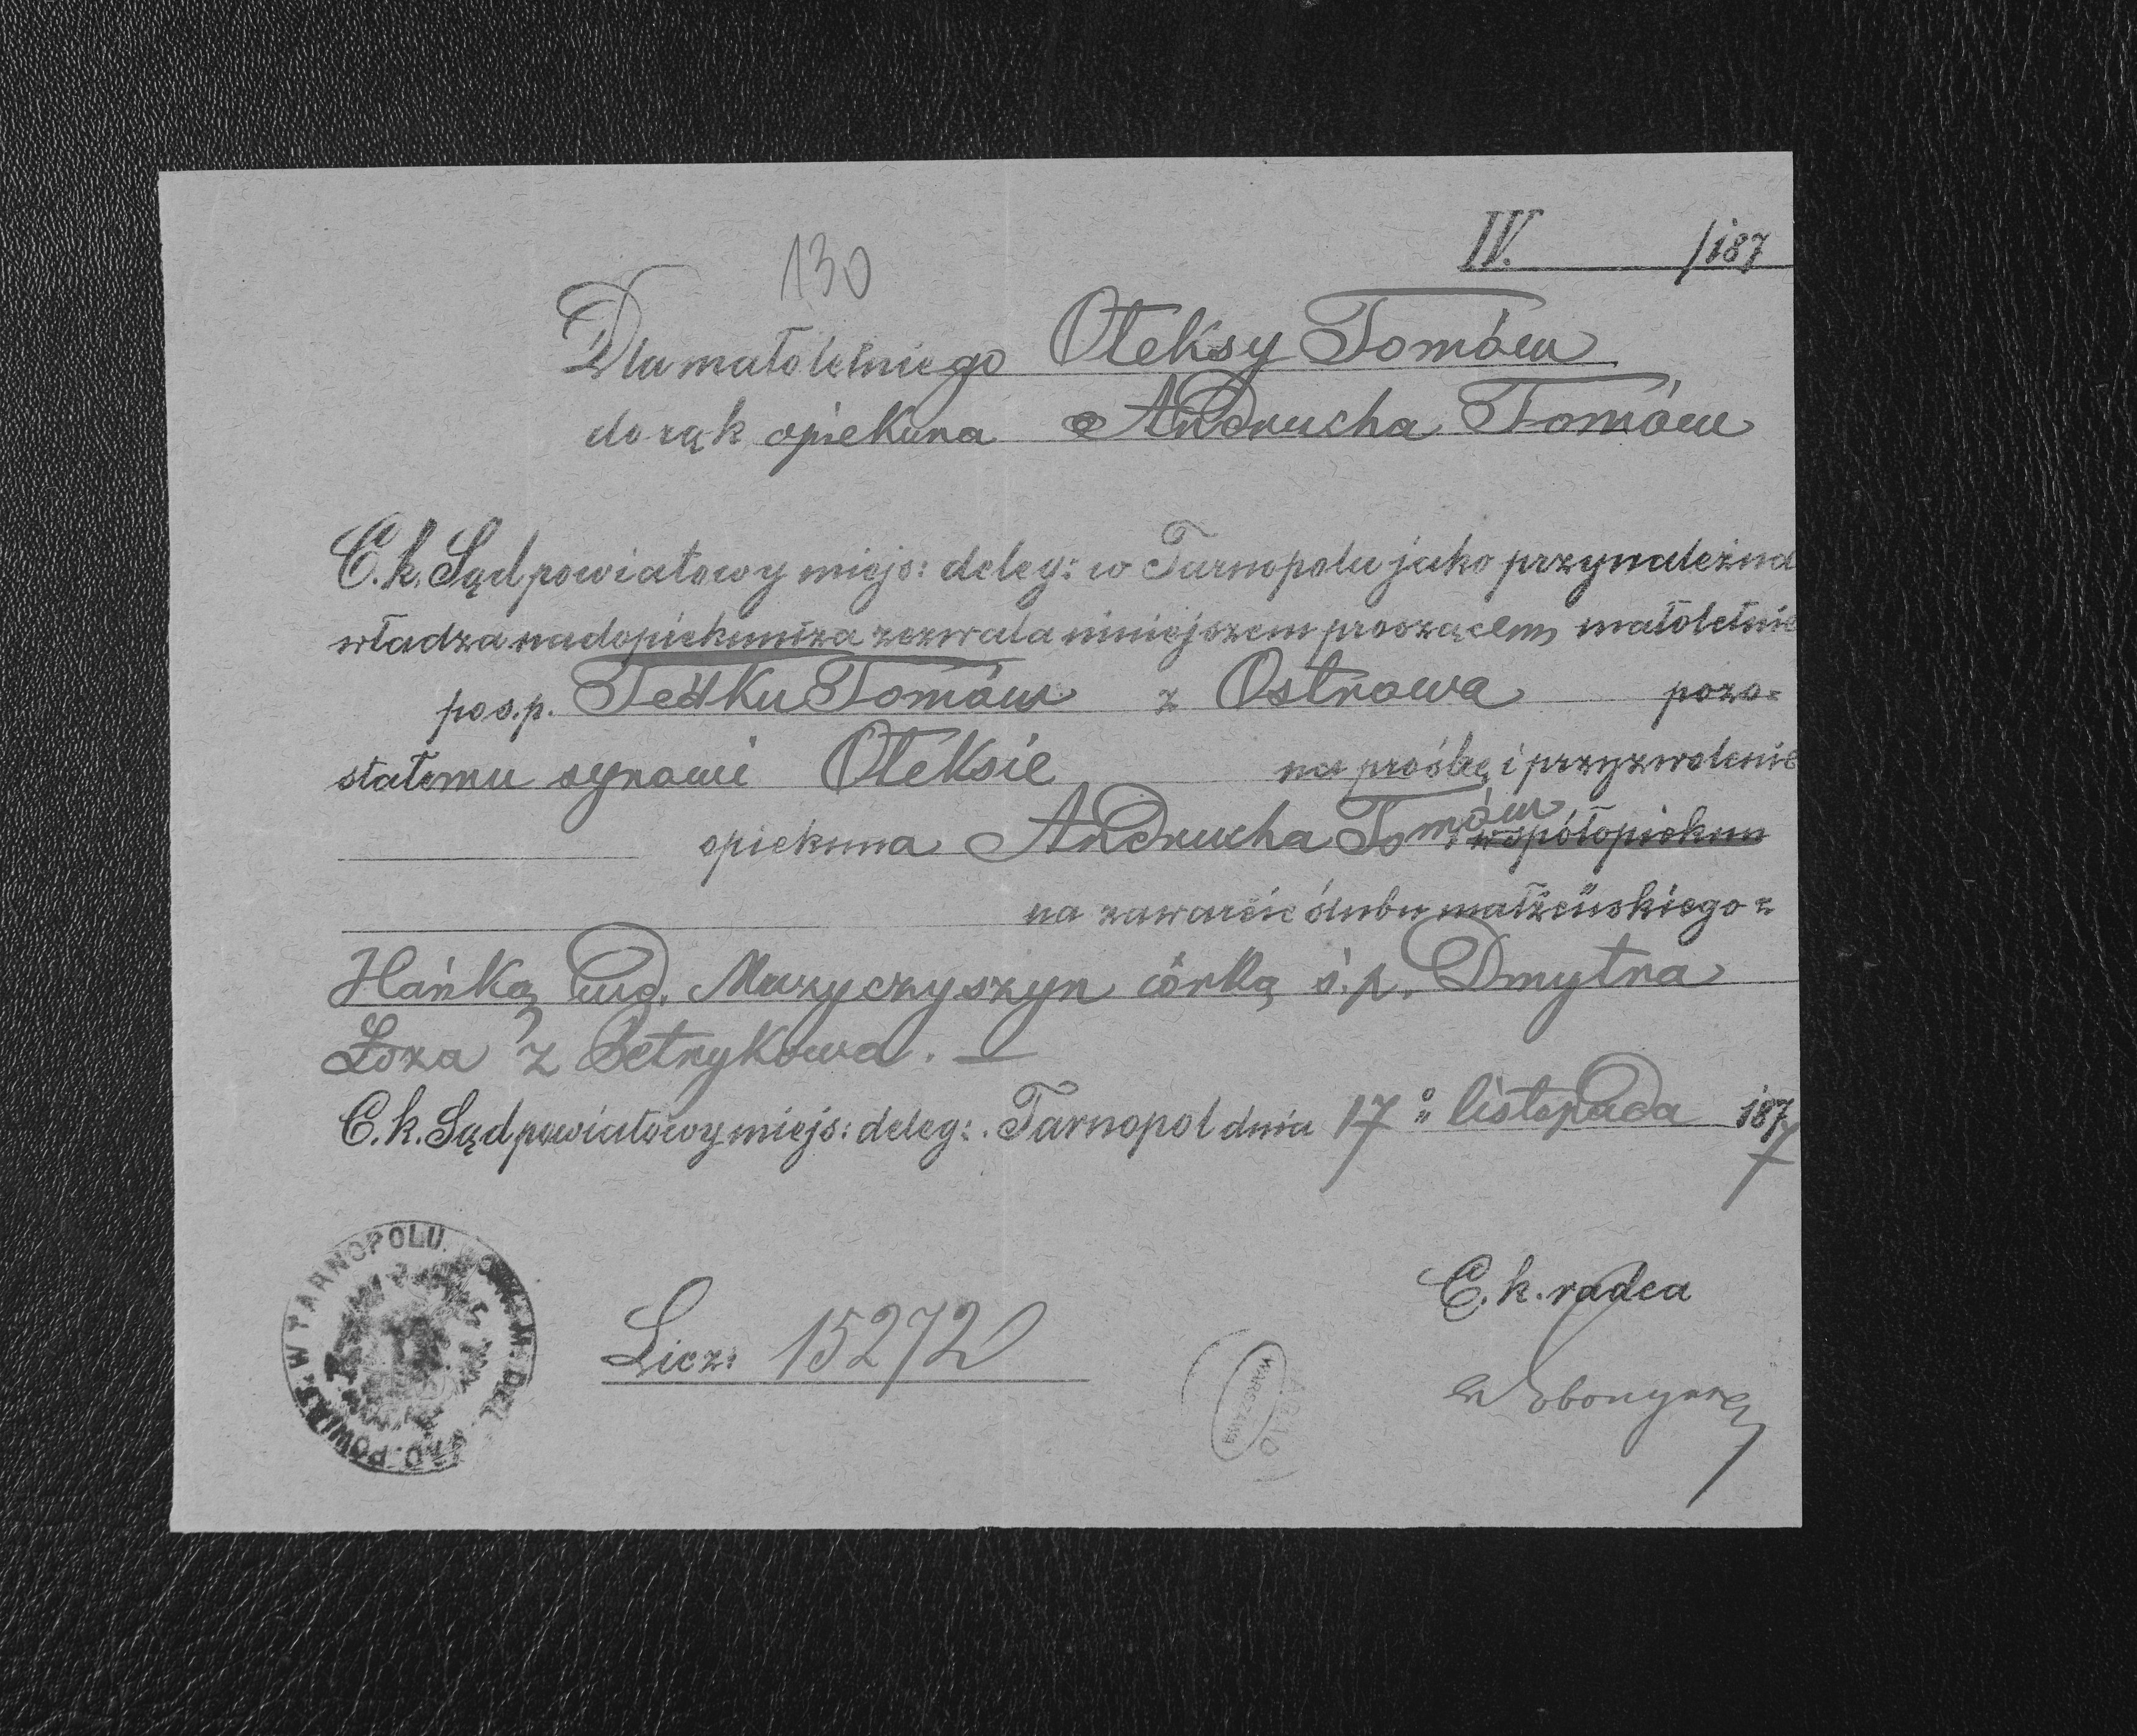 IV. /187
130
Dla małoletniego Ołeksy Tomów
do rąk opiekuna Andrucha Tomów
C. k. Sąd powiatowy miejs: deleg: w Tarnopolu jako przynależna
władza nadopiekuńcza zezwala niniejszem proszącemu małoletnie
po ś.p. Fedku Tomów z Ostrowa pozo=
stałemu synowi Ołeksie na prośbę i przyzwolenie
opiekuna Andrucha Tomów współopiekun
na zawarcie ślubu małżeńskiego z
Hańką wd. Muzyczyszyn córką ś.p. Dmytra
Łoza z Petrykowa. —
C. k. Sąd powiatowy miejs: deleg: Tarnopol dnia 17º listopada 1877
C. k. radca
Licz: 15272
W TARNOPOLU. M. DEL. SĄD. POWIAT.
AGAD
WARSZAWA